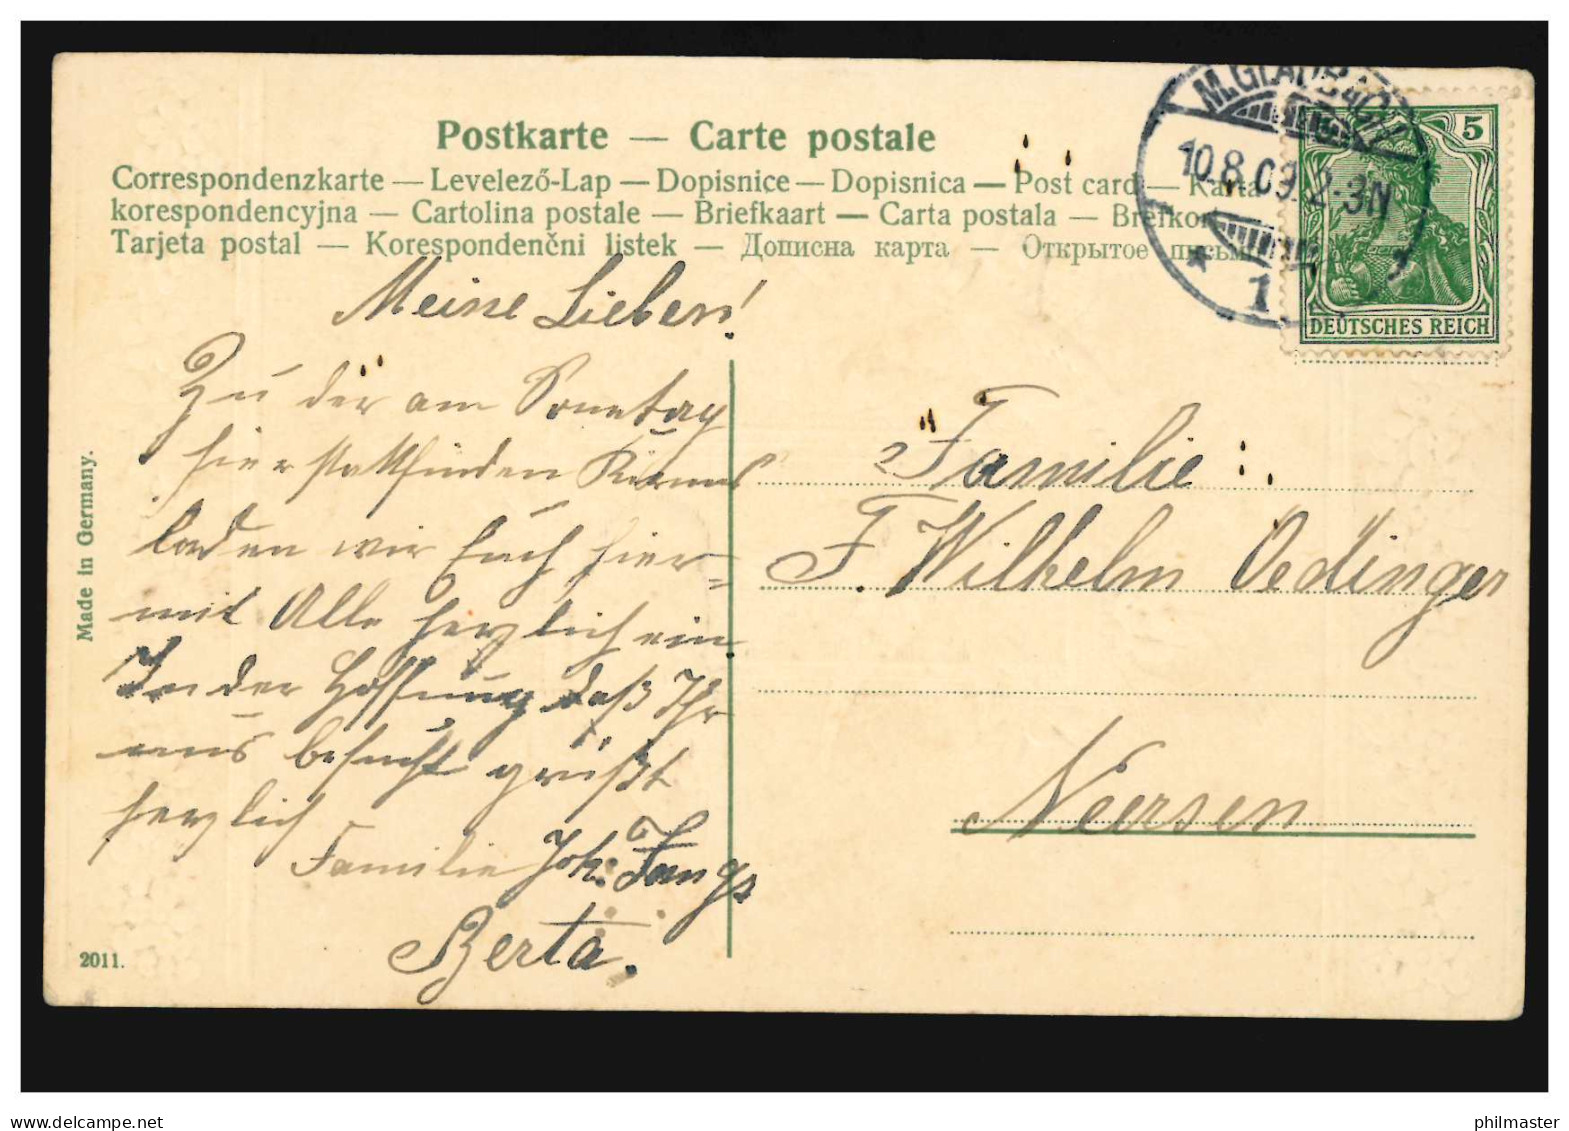 Postkarte — Carte postale
Correspondenzkarte — Levelező-Lap — Dopisnice — Dopisnica — Post card — Karta
korespondencyjna — Cartolina postale — Briefkaart — Carta postala — Brefkort
Tarjeta postal — Korespondenčni listek — Дописна карта — Открытое письмо
M.GLADBACH
10.8.09. 2-3N
* 1
5
DEUTSCHES REICH
Meine Lieben!
Zu der am Sonntag
hier stattfinden Kirmes
laden wir Euch hier=
mit Alle herzlich ein.
In der Hoffnung daß Ihr
uns besucht grüßt
herzlich
Familie Joh.
Berta.
Familie:
F. Wilhelm Oedinger
Neersen
Made in Germany.
2011.
www.delcampe.net
philmaster